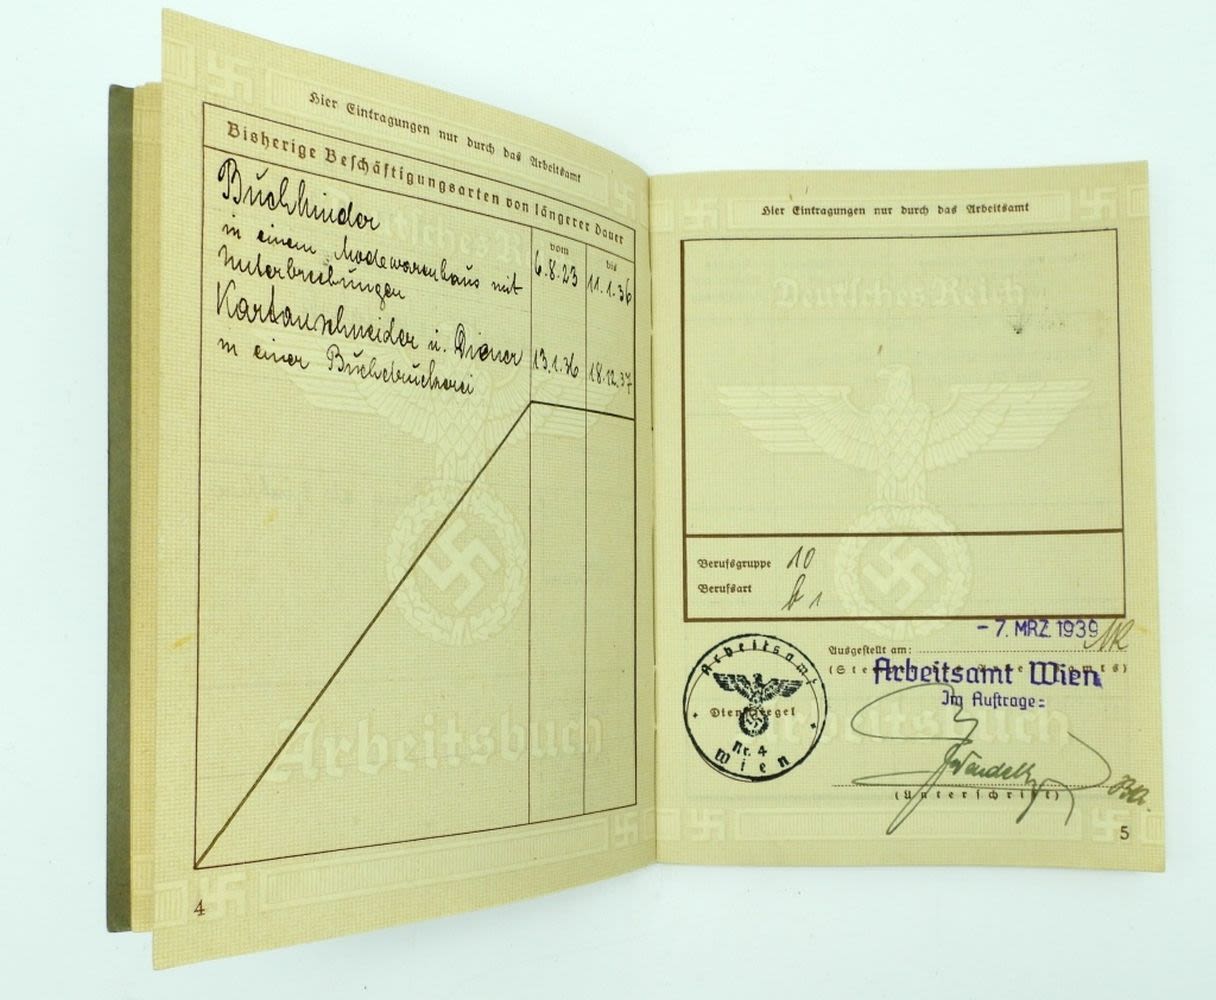 Hier Eintragungen nur durch das Arbeitsamt
Bisherige Beschäftigungsarten von längerer Dauer
vom
bis
Buchbinder
in einem Modewarenhaus mit
Unterbrechungen
6.8.23
11.1.36
Kartonschneider u. Diener
in einer Buchdruckerei
13.1.36
18.12.37
Deutsches Reich
Arbeitsbuch
4
Hier Eintragungen nur durch das Arbeitsamt
Deutsches Reich
Berufsgruppe 10
Berufsart b 1
- 7. MRZ. 1939
Ausgestellt am:
Arbeitsamt Wien
Im Auftrage:
Arbeitsamt
Dienstsiegel
Nr. 4
Wien
Arbeitsbuch
(Unterschrift)
5